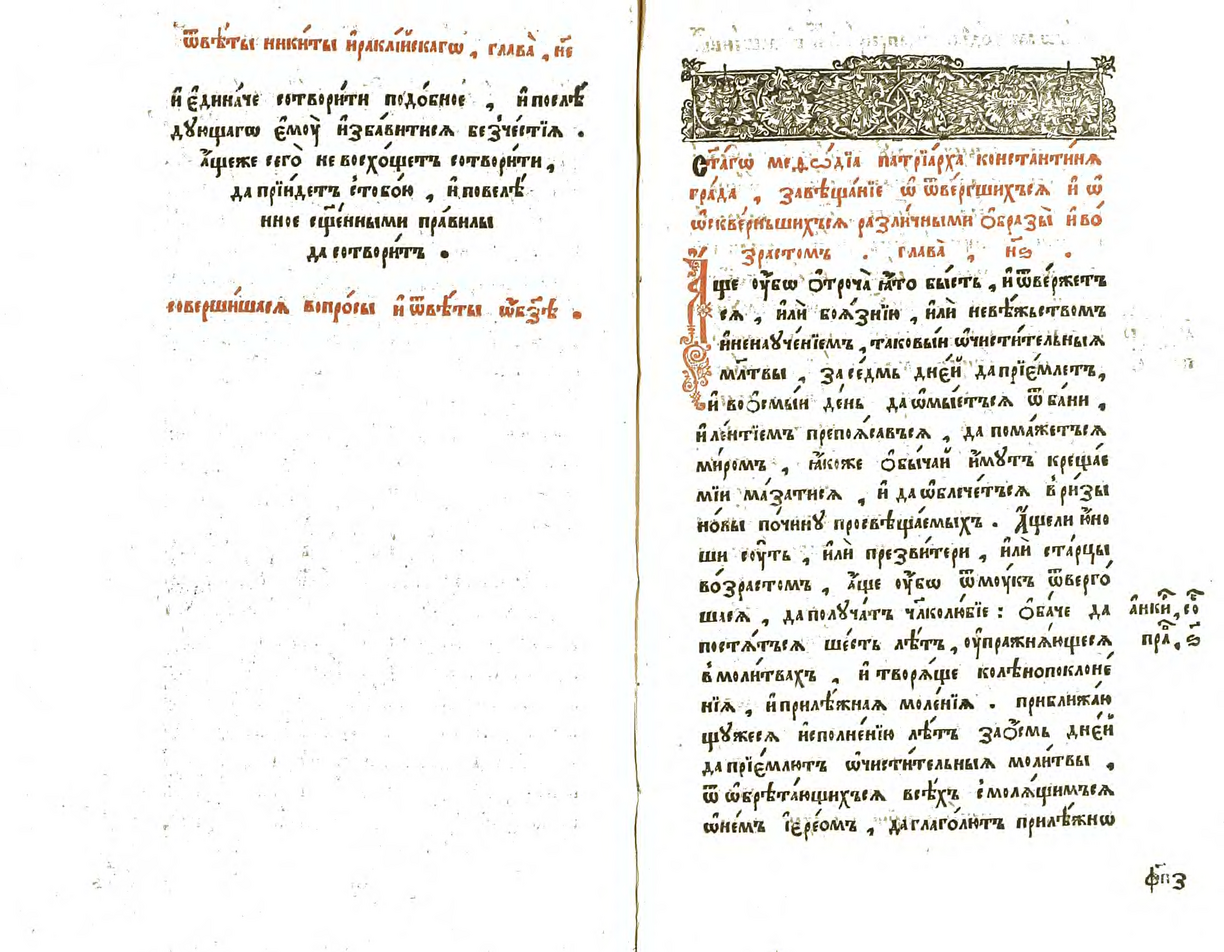 ѿвѣ́ты никиты и҆ракли́йскагѡ , глава̀ , н҃е
и҆ є҆дина́че сотвори́ти подо́бное , и҆ послѣ́
дꙋющагѡ є҆моу̀ и҆збавитися без̾че́стїѧ .
а҆́щеже сего̀ не восхо́щетъ сотвори́ти ,
да прїи́детъ с̾тобо́ю , и҆ повелѣ́
нное сщ҃е́нными пра́вилы
да сотвори́тъ .
соверши́шасѧ вопро́сы и҆ ѿвѣ́ты ѡ҆бз҃ѣ .
Ст҃а́гѡ меѳо́дїа патрїа́рха константинѧ
гра́да , завѣща́нїе ѡ҆ ѿве́ргшихъсѧ и҆ ѡ҆
ѡ҆скве́рньшихъсѧ разли́чными о҆́бразы̀ и҆ во́
зрастомъ . глава̀ , н҃ѕ .
А҆́ще оу҆́бѡ ѻ҆троча̀ ꙗ҆́то бы́сть , и҆ ѿве́ржетъ
сѧ , и҆лѝ боѧ́знїю , и҆лѝ невѣ́жьствомъ
и҆ ненаꙋче́нїемъ , таковы́и ѡ҆чисти́тельныѧ
мл҃твы , за се́дмь дне́й да прїе́млетъ ,
и҆ во ѻ҆смы́и де́нь да ѡ҆мы́етъсѧ ѿ ба́ни ,
и҆ ле́нтїемъ препоѧ́савъсѧ , да пома́жетъсѧ
ми́ромъ , ꙗ҆́коже ѻ҆бы́чай и҆́мꙋтъ креща́е
мїи ма́затисѧ , и҆ да ѡ҆блече́тъсѧ в̾ ри́зы
но́вы по чи́нꙋ просвѣща́емыхъ . А҆́щели ю҆́но
ши сꙋ́ть , и҆лѝ презви́тери , и҆лѝ ста́рцы
во́зрастомъ , а҆́ще оу҆́бѡ ѿ моу́къ ѿверго́
шасѧ , да полꙋча́тъ чл҃колю́бїе : ѻ҆ба́че да
постѧ́тъсѧ ше́сть лѣ́тъ , оу҆пражнѧ́ющесѧ
в̾ моли́твахъ , и҆ творѧ́ще колѣ́нопоклоне́
нїѧ , и҆ прилѣ́жнаѧ моле́нїѧ . приближа́ю
щꙋжесѧ и҆сполне́нїю лѣ́тъ за ѻ҆́смь дне́й
да прїе́млютъ ѡ҆чисти́тельныѧ моли́твы ,
ѿ ѡ҆брѣта́ющихъсѧ всѣ́хъ с̾ молѧ́щимъсѧ
ѡ҆ не́мъ і҆ере́омъ , да глаго́лютъ прилѣ́жнѡ
а҆нки́р , со
пра , ѕ
ф҃пз